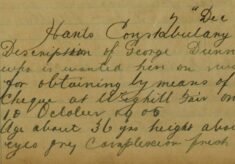 7 "Dec
Hants Constabulary
Description of George Dunn
who is wanted him on
for obtaining by means of
Cheque at Weyhill Fair on
10 October 1906
Age about 36 yrs height abou
eyes grey Complexion fresh